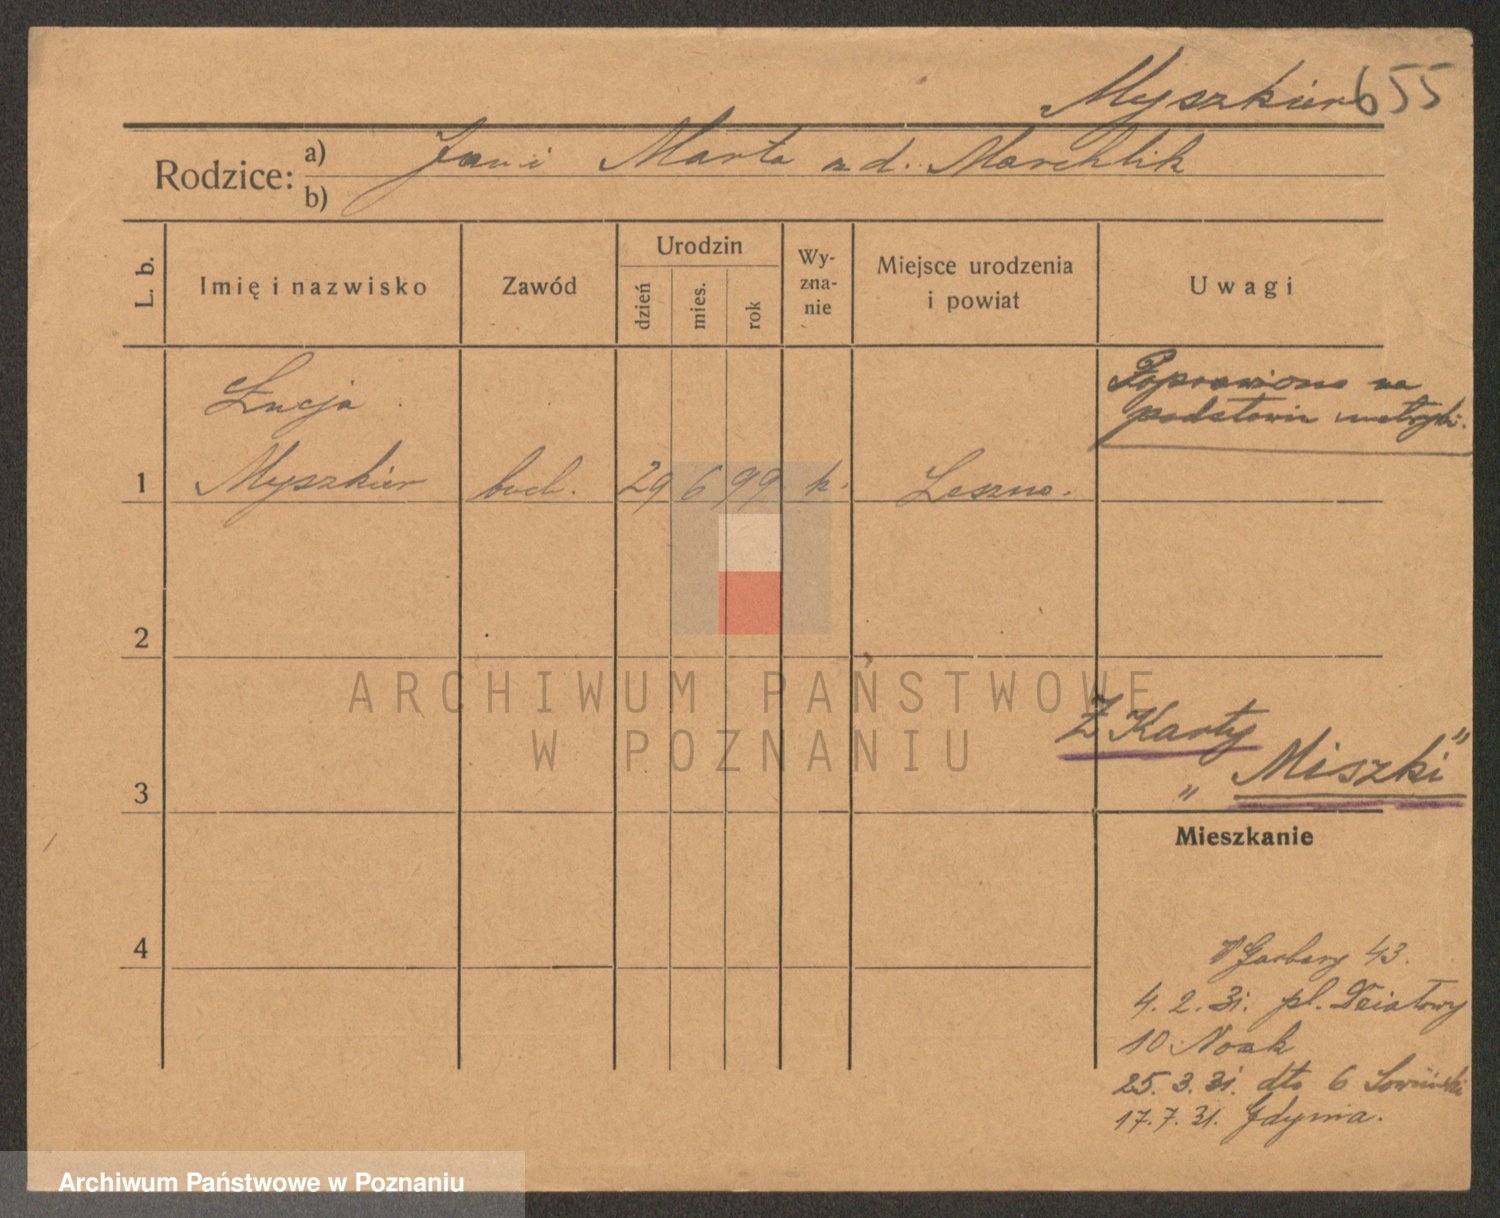 Myszkier 655
Rodzice: a) Jan i Marta z d. Marchlik
b)
L. b.
Imię i nazwisko
Zawód
Urodzin
dzień
mies.
rok
Wy-
zna-
nie
Miejsce urodzenia
i powiat
Uwagi
Łucja
Poprawiono na
podstawie metryki.
1 Myszkier buch. 29 6 99 k. Leszno.
2
ARCHIWUM PAŃSTWOWE
W POZNANIU
Z Karty
„Miszki"
3
Mieszkanie
4
Garbary 43.
4. 2. 31. pl. Działowy
10 Noak
25. 3. 31. dto 6 Sowiński
17. 7. 31. Gdynia.
Archiwum Państwowe w Poznaniu